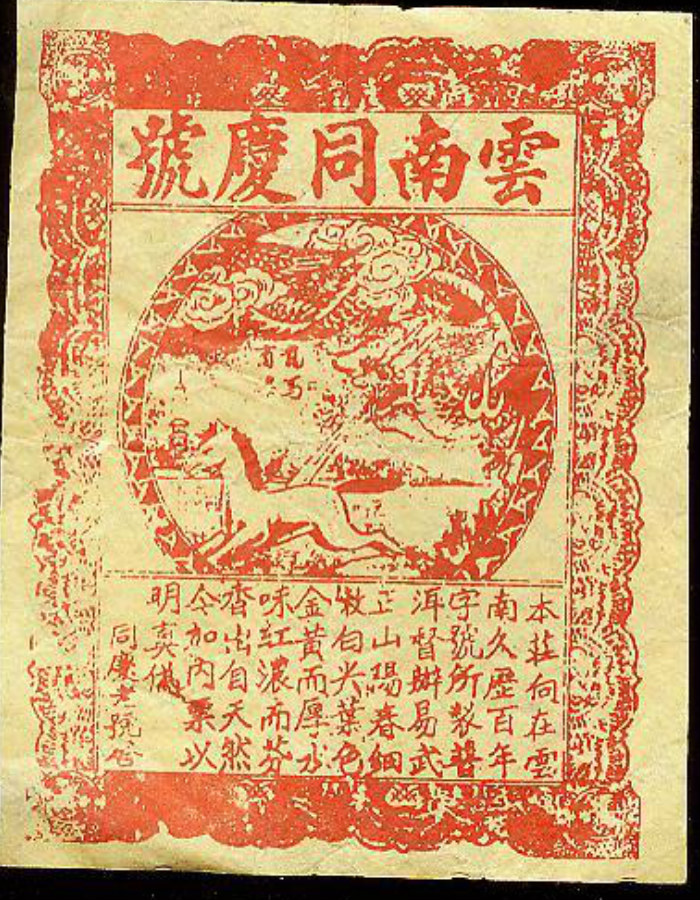 雲南同慶號
本莊向在雲
南久歷百年
字號所製普
洱督辦易武
正山陽春細
嫩白尖葉色
金黃而厚水
味紅濃而芬
香出自天然
今加內票以
明真偽
同慶老號